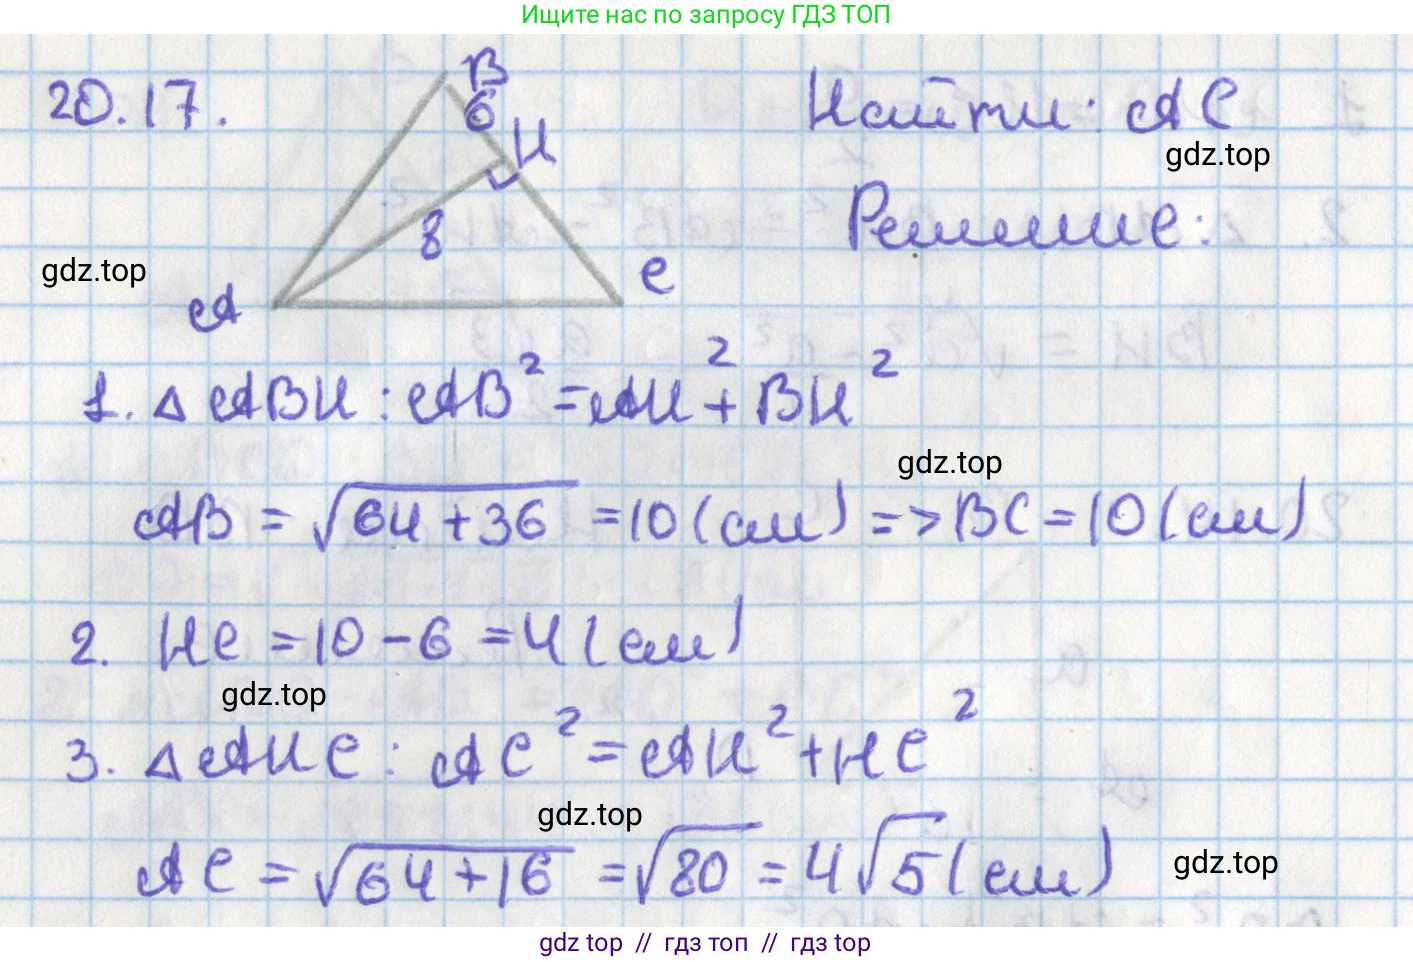 Ищите нас по запросу ГДЗ ТОП
20.17.
B
6
H
8
A
C
Найти: AC
gdz.top
Решение:
gdz.top
1. △ ABH : AB² = AH² + BH²
gdz.top
AB = √64+36 = 10 (см) => BC = 10 (см)
2. HC = 10 - 6 = 4 (см)
gdz.top
3. △ AHC : AC² = AH² + HC²
gdz.top
AC = √64+16 = √80 = 4√5 (см)
gdz.top
gdz top // гдз топ // гдз top